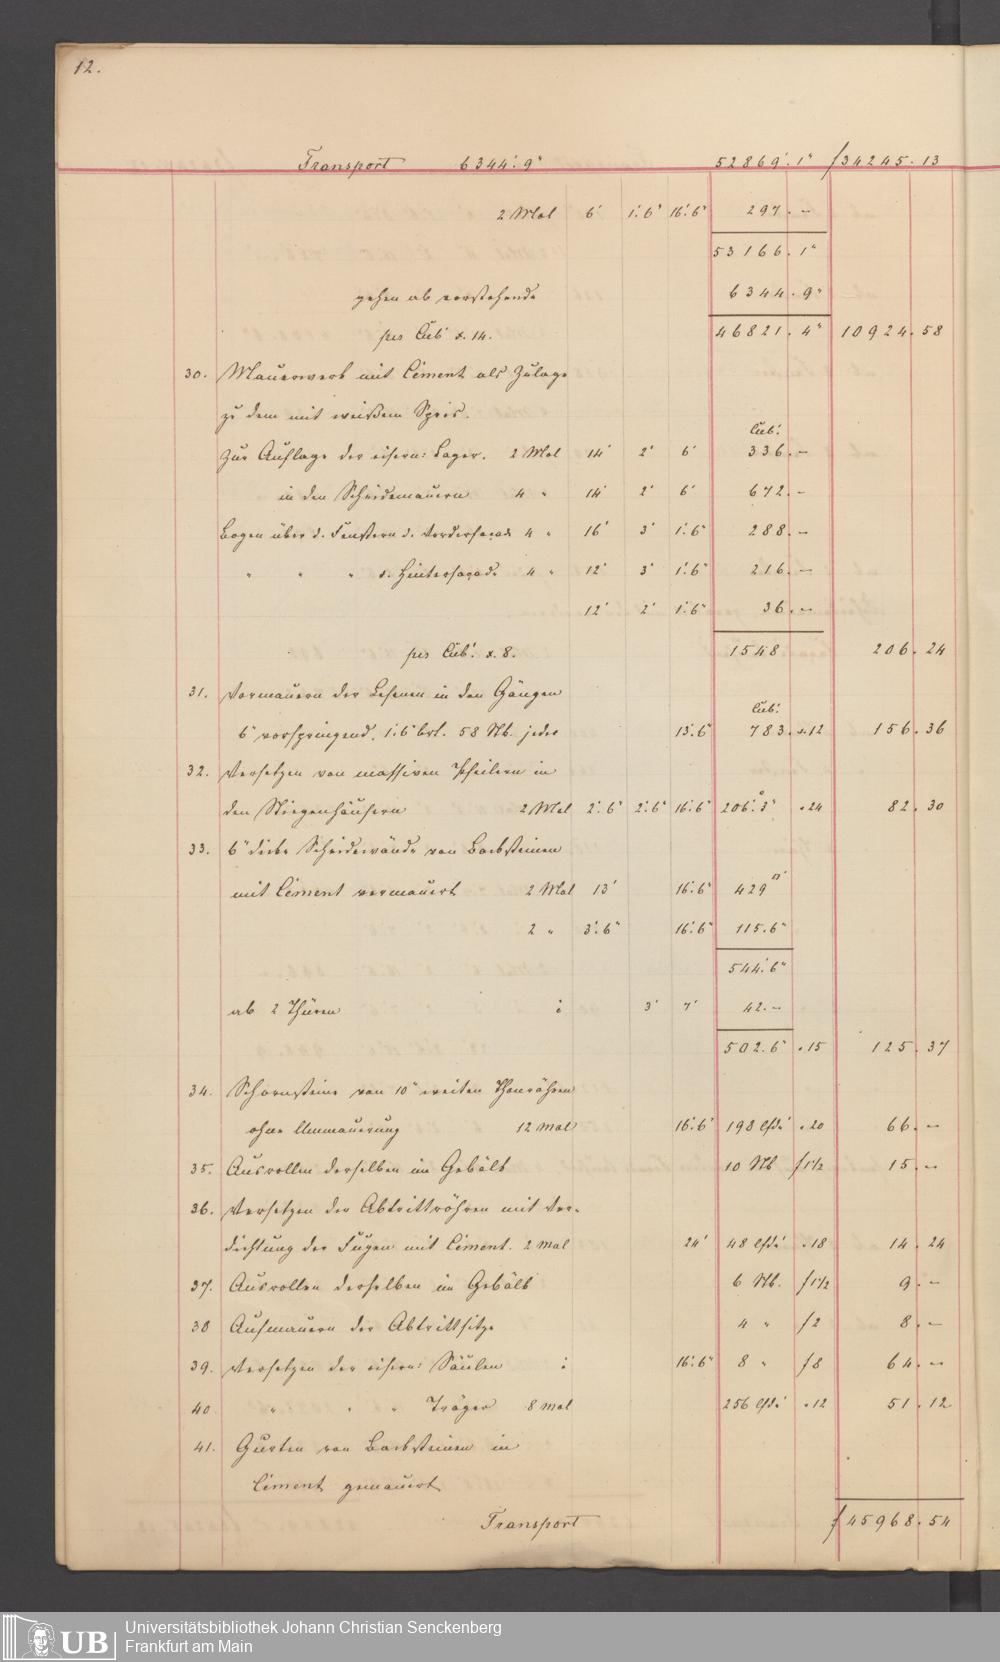 12.
Transport 6344'. 9" 52869'. 1" f 34245. 13
2 Mal 6' 1'. 6" 16'. 6" 297. -
53166. 1"
gehen ab vorstehende 6344. 9"
per Cub' x. 14. 46821. 4" 10924. 58
30. Mauerwerk mit Cement als Zulage
zu dem mit weißem Speis.
Cub'.
Zur Auflage der eisern: Lager. 2 Mal 14' 2' 6' 336. -
in den Scheidemauern 4 " 14' 2' 6' 672. -
Bogen über d. Fenstern d. Vorderfaçade 4 " 16' 3' 1'. 6" 288. -
" " " d. Hinterfaçade 4 " 12' 3' 1'. 6" 216. -
12' 2' 1'. 6" 36. -
per Cub'. x. 8. 1548 206. 24
31. Vormauern der Lesenen in den Gängen
Cub'.
6" vorspringend, 1'. 6" brt. 58 Stk. jeder 13'. 6" 783. x. 12 156. 36
32. Versetzen von massiven Pfeilern in
den Stiegenhäusern 2 Mal 2'. 6" 2'. 6" 16'. 6" 206'. 3" . 24 82. 30
33. 6" dicke Scheidewände von Backsteinen
mit Cement vermauert 2 Mal 13' 16'. 6" 429 □'
2 " 3'. 6" 16'. 6" 115. 6"
544'. 6"
ab 2 Thüren : 3' 7' 42. -
502. 6" . 15 125. 37
34. Schornsteine von 10" weiten Thonröhren
ohne Ummauerung 12 mal 16'. 6" 198 lfd' . 20 66. -
35. Ausrollen derselben im Gebälk 10 Stk f 1 1/2 15. -
36. Versetzen der Abtrittröhren mit Ver-
dichtung der Fugen mit Cement. 2 mal 24' 48 lfd' . 18 14. 24
37. Ausrollen derselben im Gebälk 6 Stk. f 1 1/2 9. -
38 Aufmauern der Abtrittsitze 4 " f 2 8. -
39. Versetzen der eisern: Säulen : 16'. 6" 8 " f 8 64. -
40 " " " Träger 8 mal 256 lfd' . 12 51. 12
41. Gurten von Backsteinen in
Cement gemauert
Transport f 45968. 54
UB
Universitätsbibliothek Johann Christian Senckenberg
Frankfurt am Main